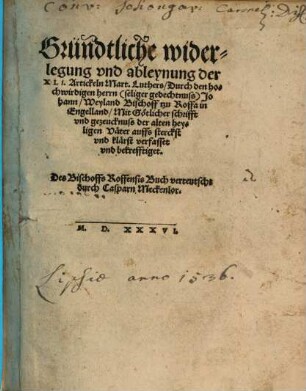 Conv: Schongav: Carmel: Disc
Gründtliche wider-
legung vnd ableynung der
XLI. Artickeln Mart. Luthers / Durch den ho-
chwirdigen herrn (seliger gedechtnuss) Jo
hann / Weyland Bischoff zu Roffa in
Engelland / Mit Götlicher schrifft
vnd gezeucknuss der alten hey-
ligen Väter auffs sterckst
vnd klärst verfasset
vnd bekrefftiget.
Des Bischoffs Roffensis Buch verteutscht
durch Casparn Meckenlor.
M. D. XXXVI.
Lipsiæ anno 1536.